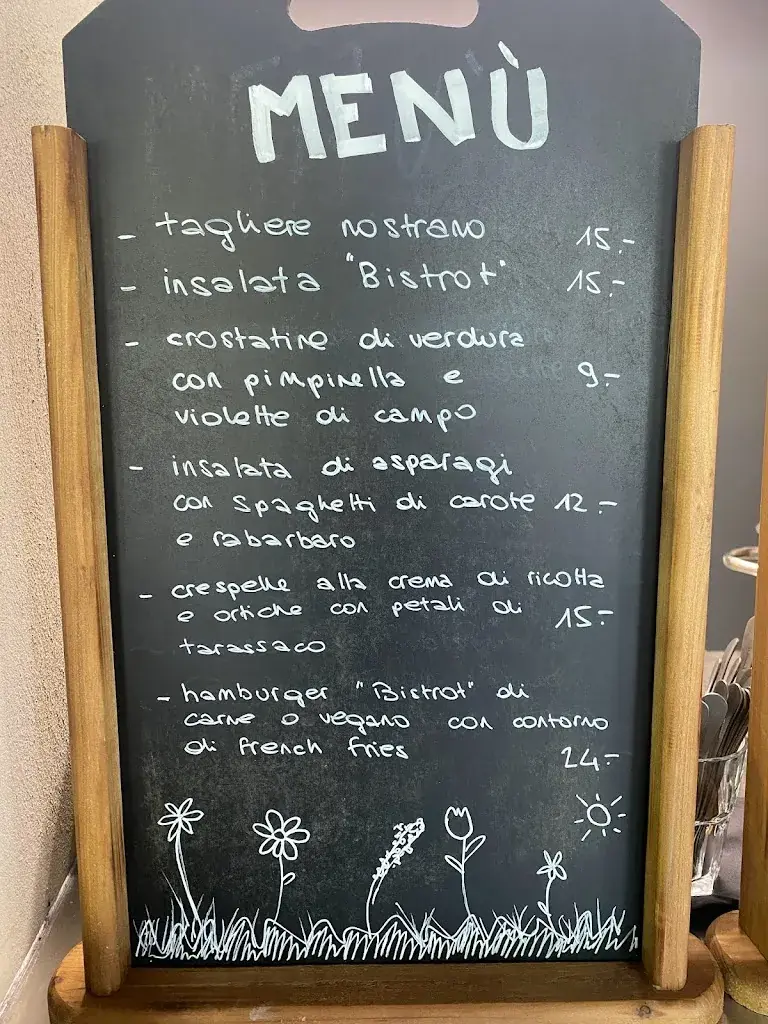 MENÙ
- tagliere nostrano 15.-
- insalata "Bistrot" 15.-
- crostatine di verdura
con pimpinella e 9.-
violette di campo
- insalata di asparagi
con spaghetti di carote 12.-
e rabarbaro
- crespelle alla crema di ricotta
e ortiche con petali di 15.-
tarassaco
- hamburger "Bistrot" di
carne o vegano con contorno
di french fries 24.-